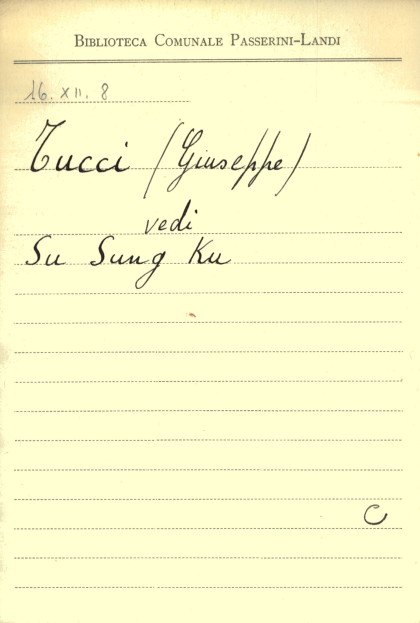 BIBLIOTECA COMUNALE PASSERINI-LANDI
16. XII. 8
Tucci (Giuseppe)
vedi
Su Sung Ku
C